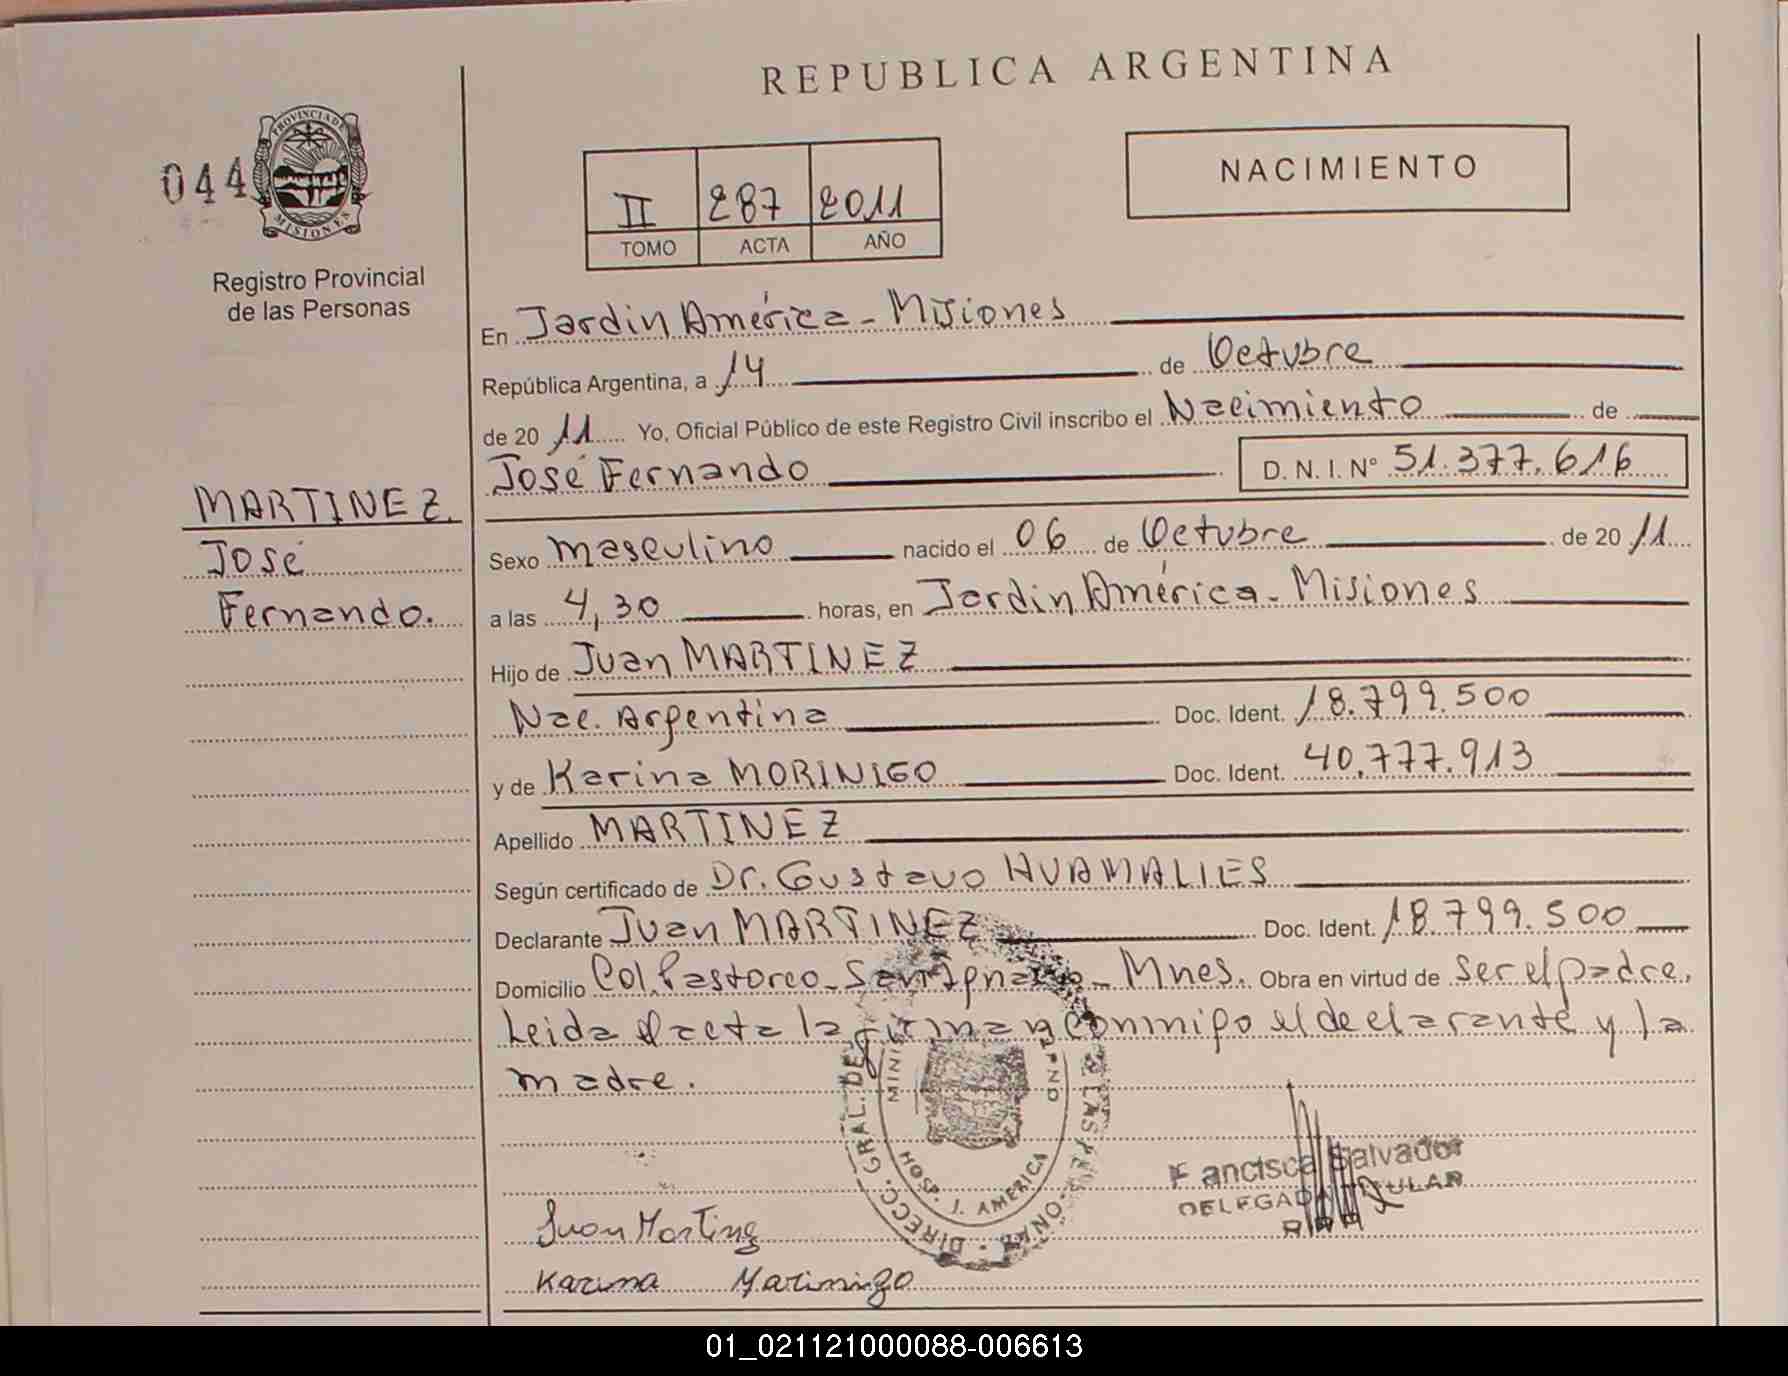 REPUBLICA ARGENTINA
044
PROVINCIA DE
MISIONES
Registro Provincial
de las Personas
II 287 2011
TOMO ACTA AÑO
NACIMIENTO
En Jardin América - Misiones
República Argentina, a 14 de Octubre
de 20 11 Yo, Oficial Público de este Registro Civil inscribo el Nacimiento de
José Fernando D. N. I. Nº 51.377.616
MARTINEZ.
José
Fernando.
Sexo masculino nacido el 06 de Octubre de 20 11
a las 4,30 horas, en Jardin América - Misiones
Hijo de Juan MARTINEZ
Nac. Argentina Doc. Ident. 18.799.500
y de Karina MORINIGO Doc. Ident. 40.777.913
Apellido MARTINEZ
Según certificado de Dr. Gustavo HUAMALIES
Declarante Juan MARTINEZ Doc. Ident. 18.799.500
Domicilio Col. Pastoreo - San Ignacio - Mnes. Obra en virtud de ser el padre.
Leida el acta la firman conmigo el declarante y la
madre.
DIRECC. GRAL. DE
HOSP. J. AMERICA
Salvador
DELEGADA
Juan Martinez
Karina Marinigo
01_021121000088-006613